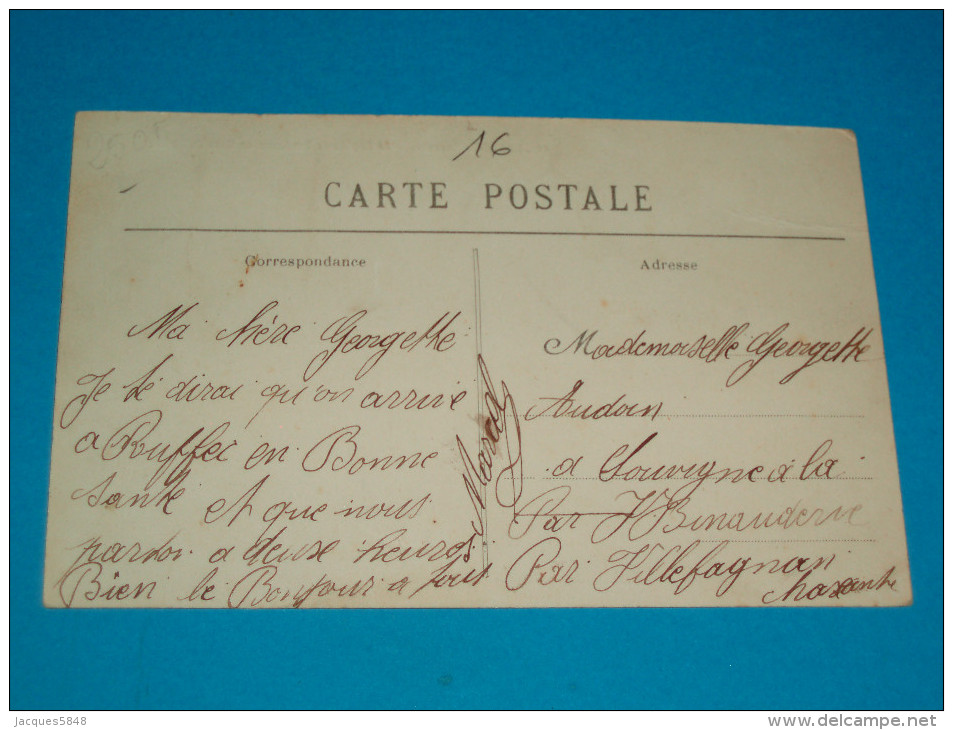 16
CARTE POSTALE
Correspondance
Adresse
Ma chère Georgette
Je te dirai qu'on arrive
a Ruffec en Bonne
santé et que nous
parton a deuse heures
Bien le Bonjour a tout
Mademoiselle Georgette
Audoin
a Souvigne à la
Par
Par Villefagnan
charente
Jacques5848
www.delcampe.net